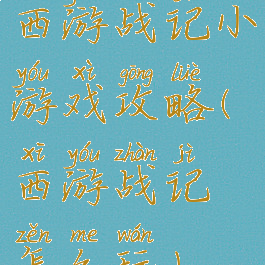 西游战记小
yóu xì gōng lüè
游戏攻略(
xī yóu zhàn jì
西游战记
zěn me wán
怎么玩)